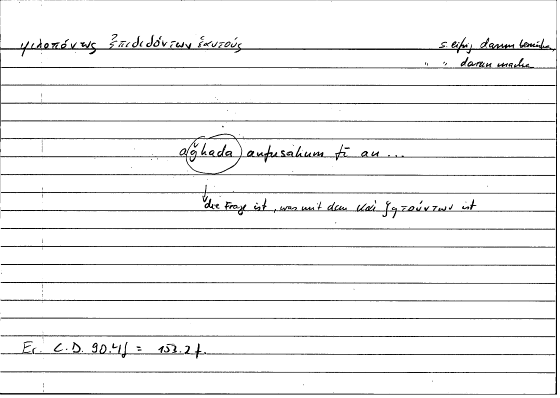 φιλοπόνως ἐπιδιδόντων ἑαυτούς
s. eifrig darum bemühen
" " daran machen
aǧhada anfusahum fī an ...
die Frage ist, was mit dem καὶ ζητούντων ist
Er. C.D. 90.4f = 153.2f.